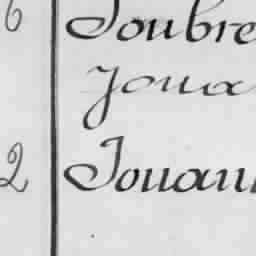 6 Joubre
Joua
2 Jouan